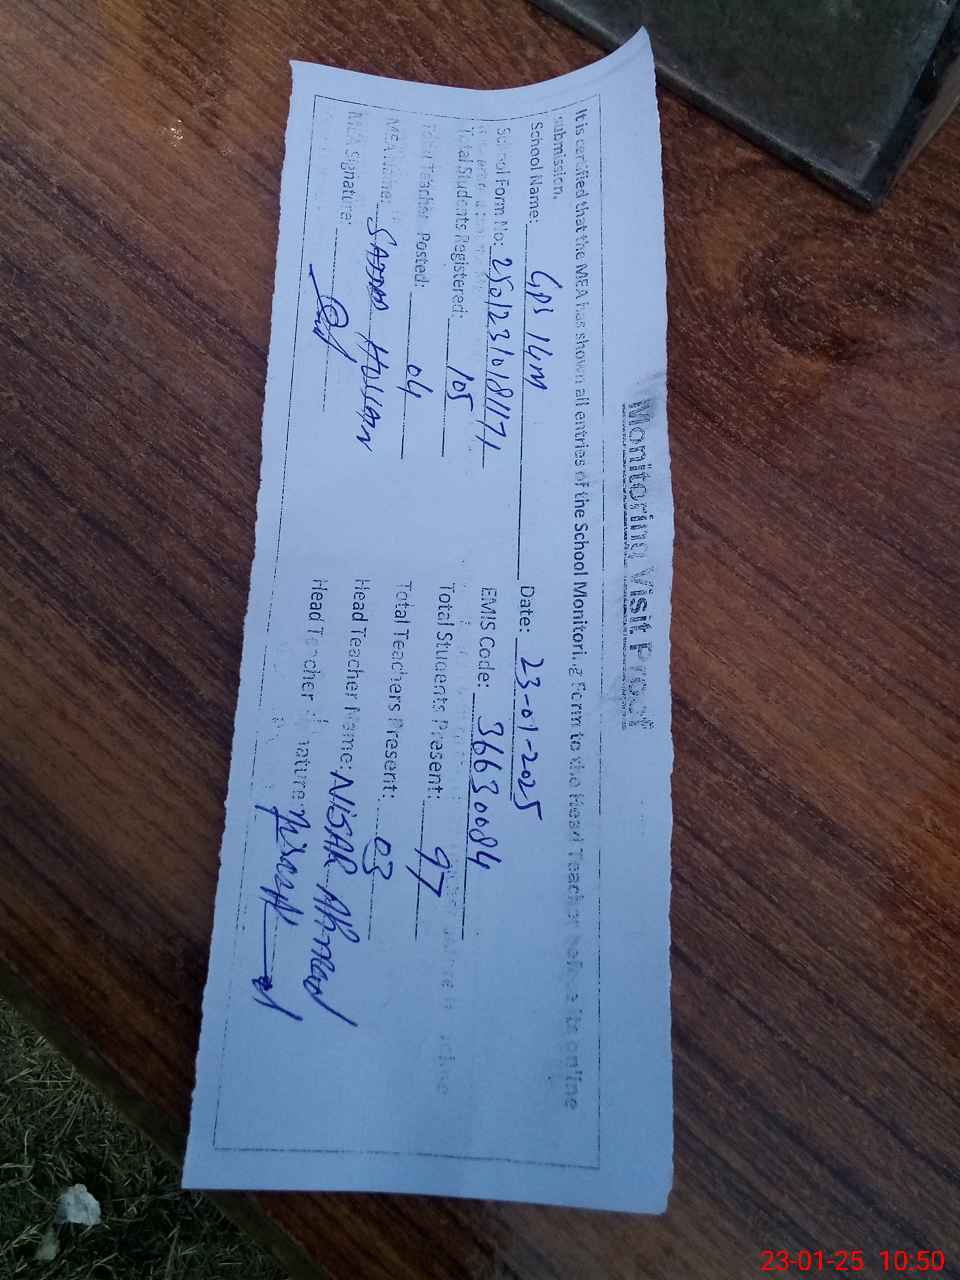 Monitoring Visit Proof
It is certified that the MEA has shown all entries of the School Monitoring Form to the Head Teacher before its online
submission.
School Name: GPS 14M Date: 23-01-2025
School Form No: EMIS Code: 36630084
Total Students Registered: 105 Total Students Present: 97
Total Teacher Posted: 04 Total Teachers Present: 03
MEA Name: Head Teacher Name: NISAR Ahmad
MEA Signature: Head Teacher Signature:
23-01-25 10:50